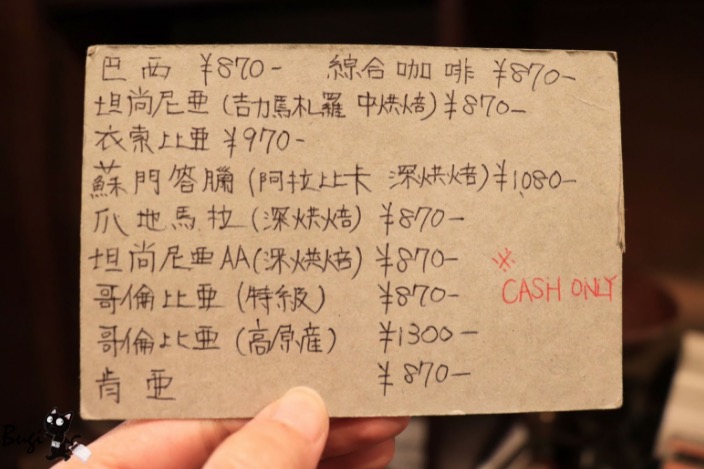 巴西 ¥870- 綜合咖啡 ¥870-
坦尚尼亜(吉力馬札羅 中烘焙)¥870-
衣索比亜 ¥970-
蘇門答臘(阿拉比卡 深烘焙)¥1,080-
爪地馬拉(深烘焙) ¥870-
坦尚尼亜AA(深烘焙) ¥870-
哥倫比亜(特級) ¥870-
※ CASH ONLY
哥倫比亜(高原産) ¥1300-
肯亜 ¥870-
Bugi